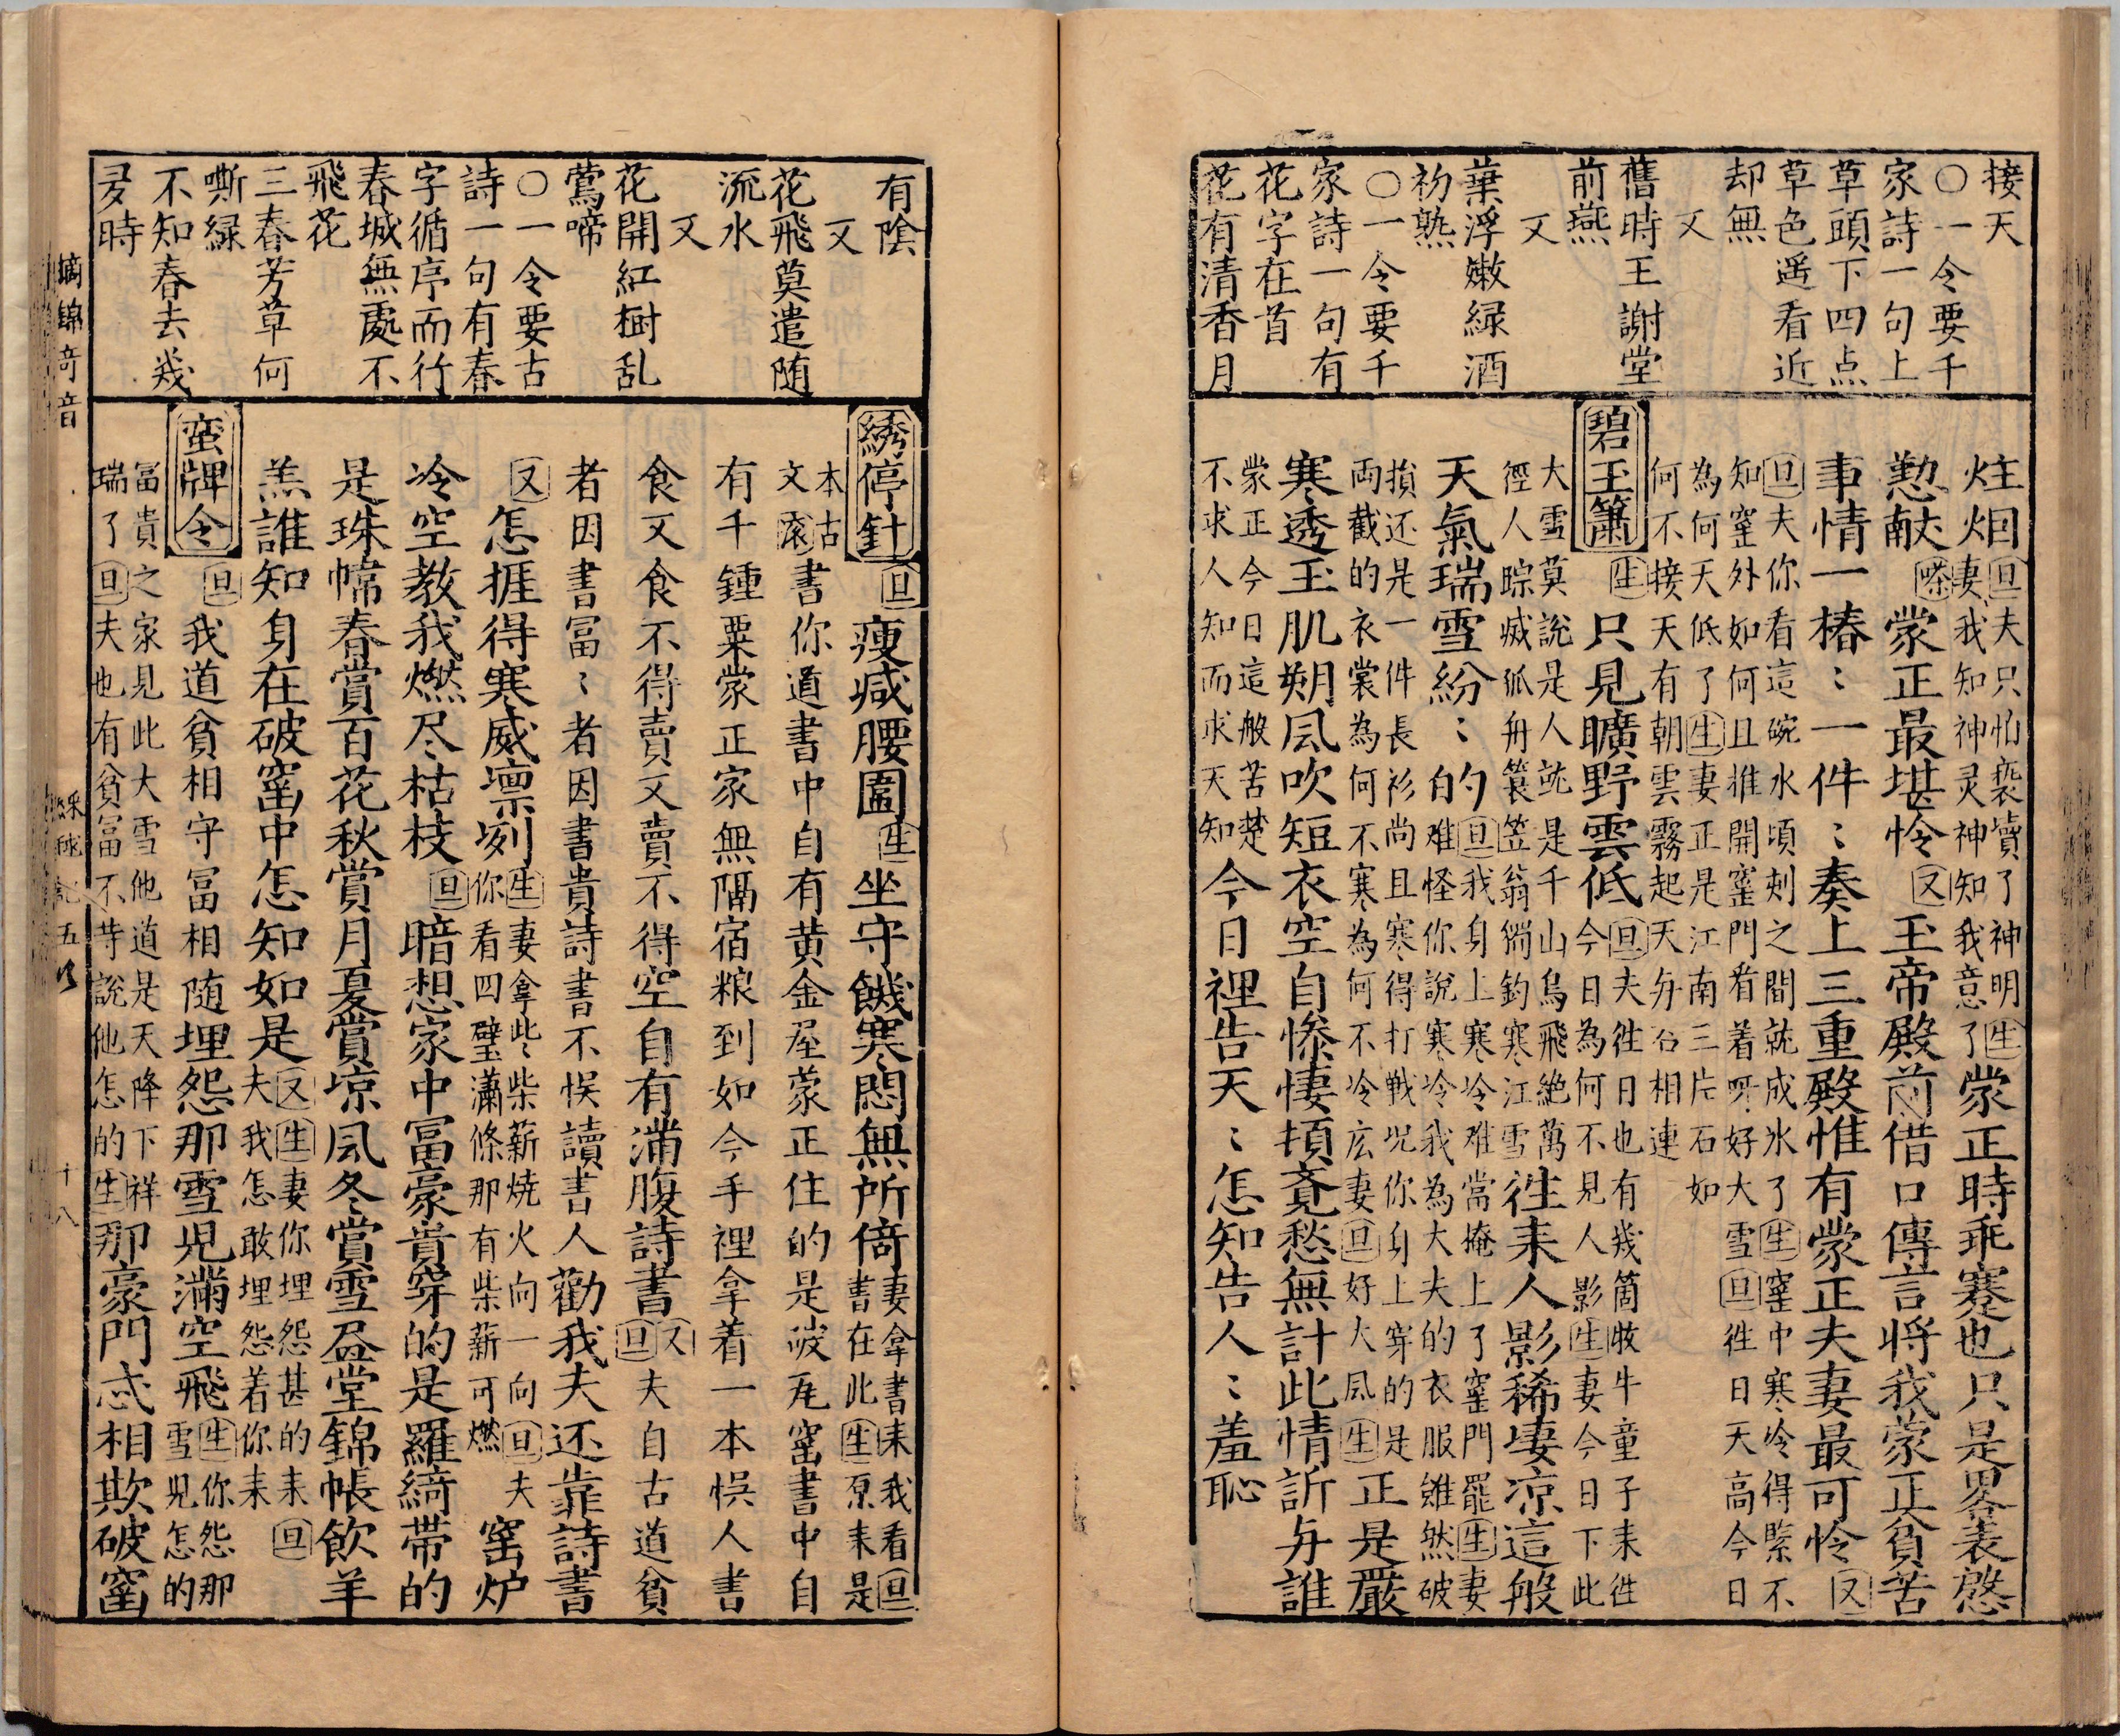 接天
○一令要千
家詩一句上
草頭下四点
草色遥看近
却無
又
舊時王謝堂
前燕
又
葉浮嫩緑酒
初熟
○一令要千
家詩一句有
花字在首
花有清香月
炷烟
旦夫只怕褻瀆了神明生
妻我知神灵神知我意了
蒙正時乖蹇也只是畧表慇
懃献
嗏
蒙正最堪怜
又
玉帝殿前借口傳言将我蒙正貧苦
事情一樁〻一件〻奏上三重殿惟有蒙正夫妻最可怜
又
旦夫你看這碗水頃刻之間就成氷了生窰中寒冷得緊不
知窰外如何且推開窰門看着呀好大雪旦往日天高今日
為何天低了生妻正是江南三片石如
何不接天有朝雲霧起天与石相連
碧玉簫
生
只見曠野雲低
旦夫徃日也有幾箇牧牛童子来徃
今日為何不見人影生妻今日下此
大雪莫說是人就是千山鳥飛絶萬
徑人踪滅孤舟簑笠翁獨釣寒江雪
徃来人影稀凄凉這般
天氣瑞雪紛〻的
旦我身上寒冷难當掩上了窰門罷生妻
自难怪你說寒冷我為大夫的衣服雖然破
損还是一件長衫尚且寒得打戦况你身上穿的是
両截的衣裳為何不寒為何不冷庅妻旦好大風生
正是嚴
寒透玉肌朔風吹短衣空自慘悽頓覔愁無計此情訴与誰
蒙正今日這般苦楚
不求人知而求天知
今日裡告天〻怎知告人〻羞恥
有陰
又
花飛莫遣随
流水
又
花開紅樹乱
鶯啼
○一令要古
詩一句有春
字循序而行
春城無處不
飛花
三春芳草何
嘶緑
不知春去幾
多時
綉停針
旦
瘦减腰圍
生
坐守饑寒悶無所倚
妻拿書来我看旦
書在此生原来是
本古
文滚
書你道書中自有黄金屋蒙正住的是破瓦窰書中自
有千鍾粟蒙正家無隔宿粮到如今手裡拿着一本悞人書
食又食不得賣又賣不得空自有滿腹詩書
又
旦
夫自古道貧
者因書冨〻者因書貴詩書不悞讀書人勸我夫还靠詩書
又
怎捱得寒威凛冽
生妻拿此柴薪焼火向一向旦夫
你看四壁瀟條那有柴薪可燃
窑炉
冷空教我燃尽枯枝
旦
暗想家中冨豪貴穿的是羅綺带的
是珠幃春賞百花秋賞月夏賞凉風冬賞雪盈堂錦帳飲羊
羔誰知身在破窰中怎知如是
又生妻你埋怨甚的来旦
夫我怎敢埋怨着你来
蛮牌令
旦
我道貧相守冨相随埋怨那雪児滿空飛
生你怨那
雪児怎的
冨貴之家見此大雪他道是天降下祥
瑞了旦夫也有貧冨不等說他怎的生
那豪門忒相欺破窰
摘錦奇音
綵毬記五
十八